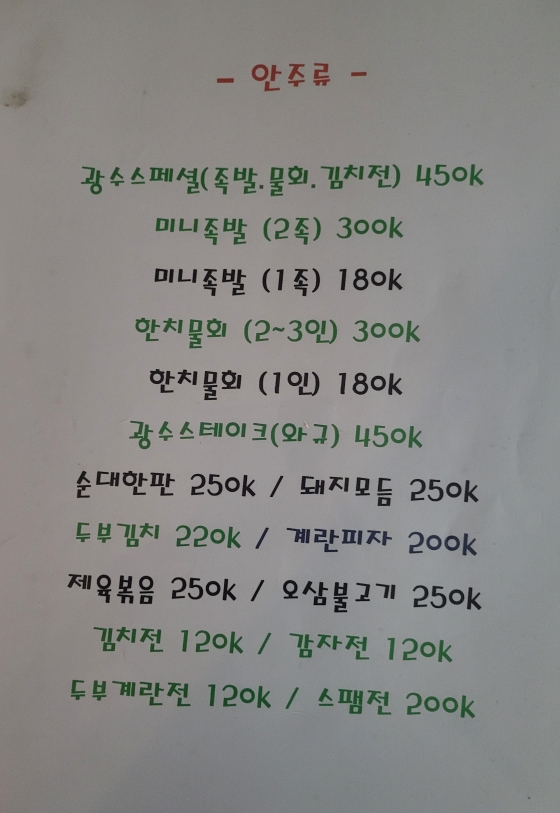 - 안주류 -
광수스페셜(족발.물회.김치전) 450k
미니족발 (2족) 300k
미니족발 (1족) 180k
한치물회 (2~3인) 300k
한치물회 (1인) 180k
광수스테이크(와규) 450k
순대한판 250k / 돼지모듬 250k
두부김치 220k / 계란피자 200k
제육볶음 250k / 오삼불고기 250k
김치전 120k / 감자전 120k
두부계란전 120k / 스팸전 200k